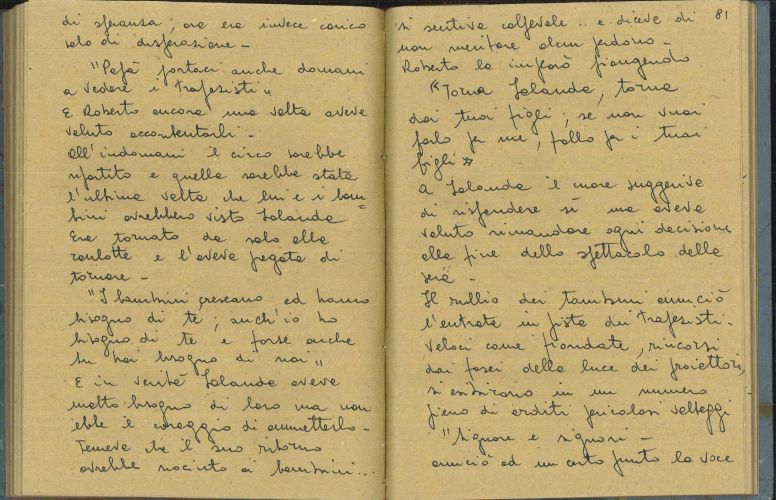 di speranza; ora era invece carico
solo di disperazione -
"Papà portaci anche domani
a vedere i trapezisti"
E Roberto ancora una volta aveva
voluto accontentarli -
All'indomani il circo sarebbe
ripartito e quella sarebbe stata
l'ultima volta che lui e i bam=
bini avrebbero visto Iolanda
Era tornato da solo alla
roulotte e l'aveva pregata di
tornare -
"I bambini crescono ed hanno
bisogno di te; anch'io ho
bisogno di te e forse anche
tu hai bisogno di noi"
E in verità Iolanda aveva
molto bisogno di loro ma non
ebbe il coraggio di ammetterlo -
Temeva che il suo ritorno
avrebbe nociuto ai bambini...
81
si sentiva colpevole .. e diceva di
non meritare alcun perdono -
Roberto la implorò piangendo
"Torna Iolanda, torna
dai tuoi figli; se non vuoi
farlo per me, fallo per i tuoi
figli"
A Iolanda il cuore suggeriva
di rispondere sì ma aveva
voluto rimandare ogni decisione
alla fine dello spettacolo della
sera -
Il rullio dei tamburi annunciò
l'entrata in pista dei trapezisti.
Veloci come fiondate, rincorsi
dai fasci della luce dei proiettori,
si esibirono in un numero
pieno di arditi pericolosi volteggi
"Signore e signori -
annunciò ad un certo punto la voce